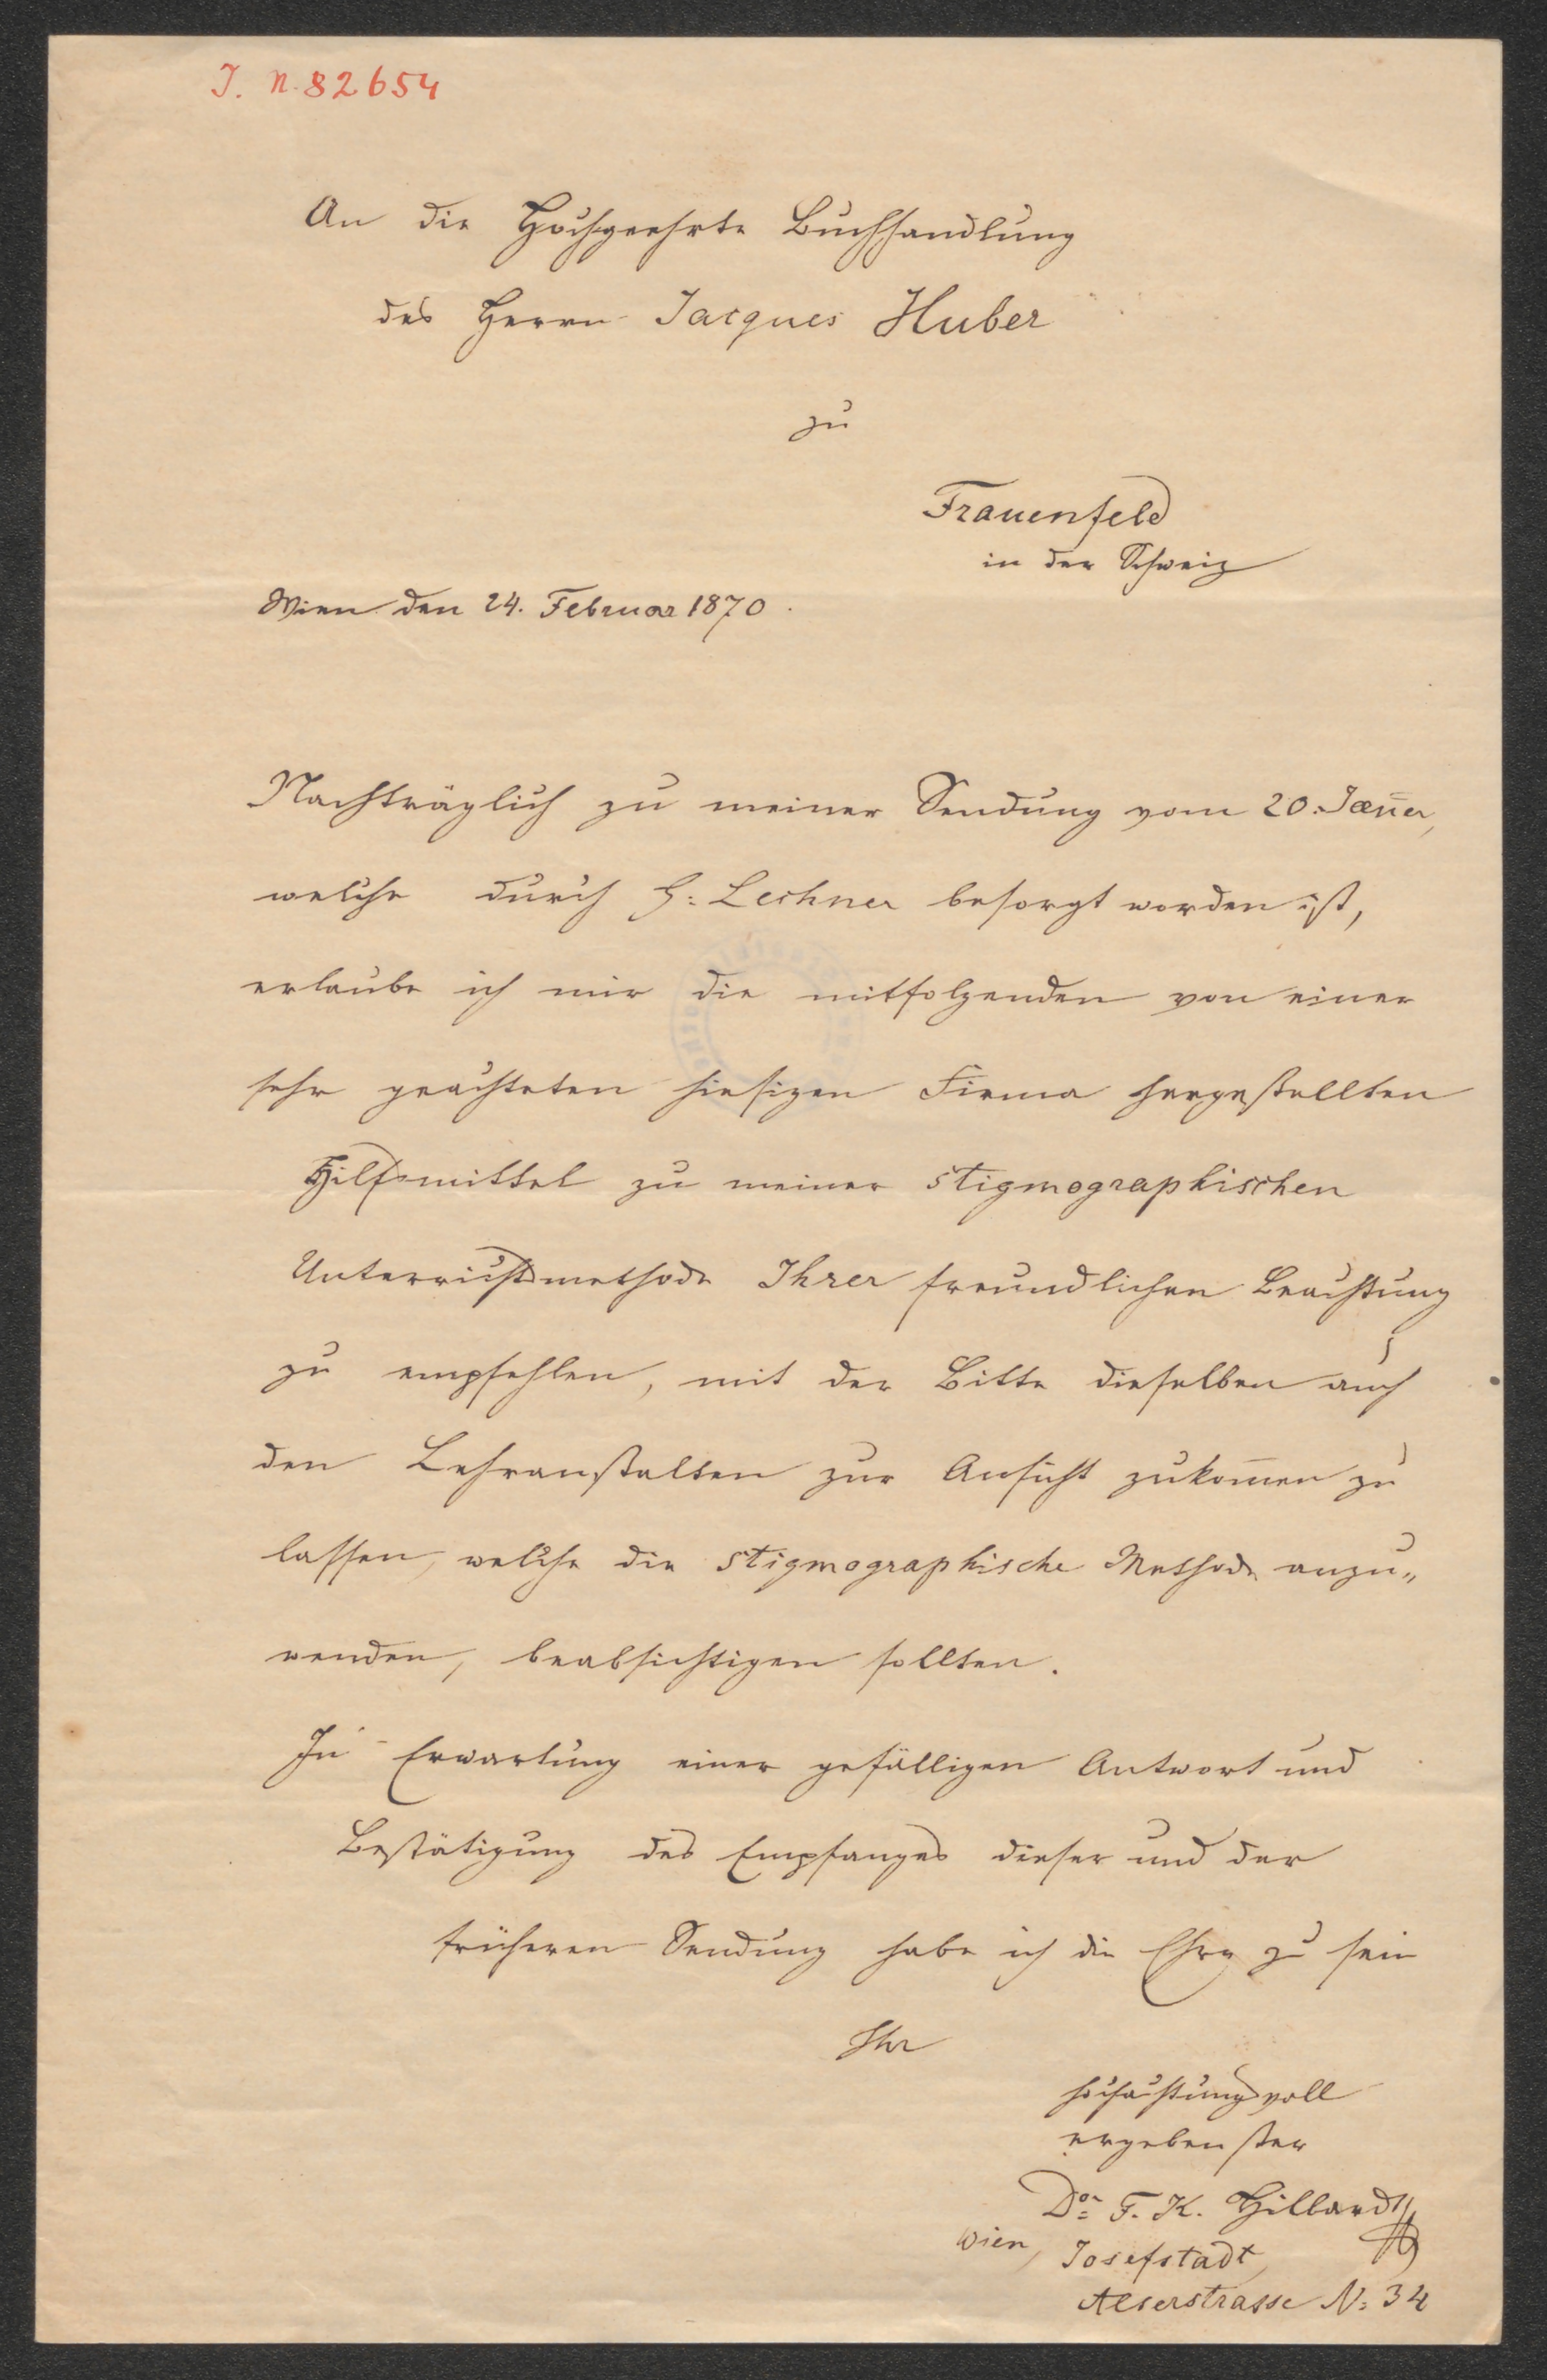 J. N. 82654
An die Hochgeehrte Buchhandlung
des Herrn Jacques Huber
zu
Frauenfeld
in der Schweiz
Wien den 24. Februar 1870.
Nachträglich zu meiner Sendung vom 20. Jäñer,
welche durch H: Lechner besorgt worden ist,
erlaube ich mir die mitfolgenden von einer
sehr geachteten hiesigen Firma hergestellten
Hilfsmittel zu meiner stigmographischen
Unterrichtsmethode Ihrer freundlichen Beachtung
zu empfehlen, mit der Bitte dieselben auch
den Lehranstalten zur Ansicht zukom̄en zu
lassen, welche die stigmographische Methode anzu„
wenden, beabsichtigen sollten.
In Erwartung einer gefälligen Antwort und
Bestätigung des Empfanges dieser und der
früheren Sendung habe ich die Ehre zu sein
Ihr
hochachtungsvoll
ergebenster
Dr. F. K. Hillardt
Wien, Josefstadt,
Alserstrasse N: 34